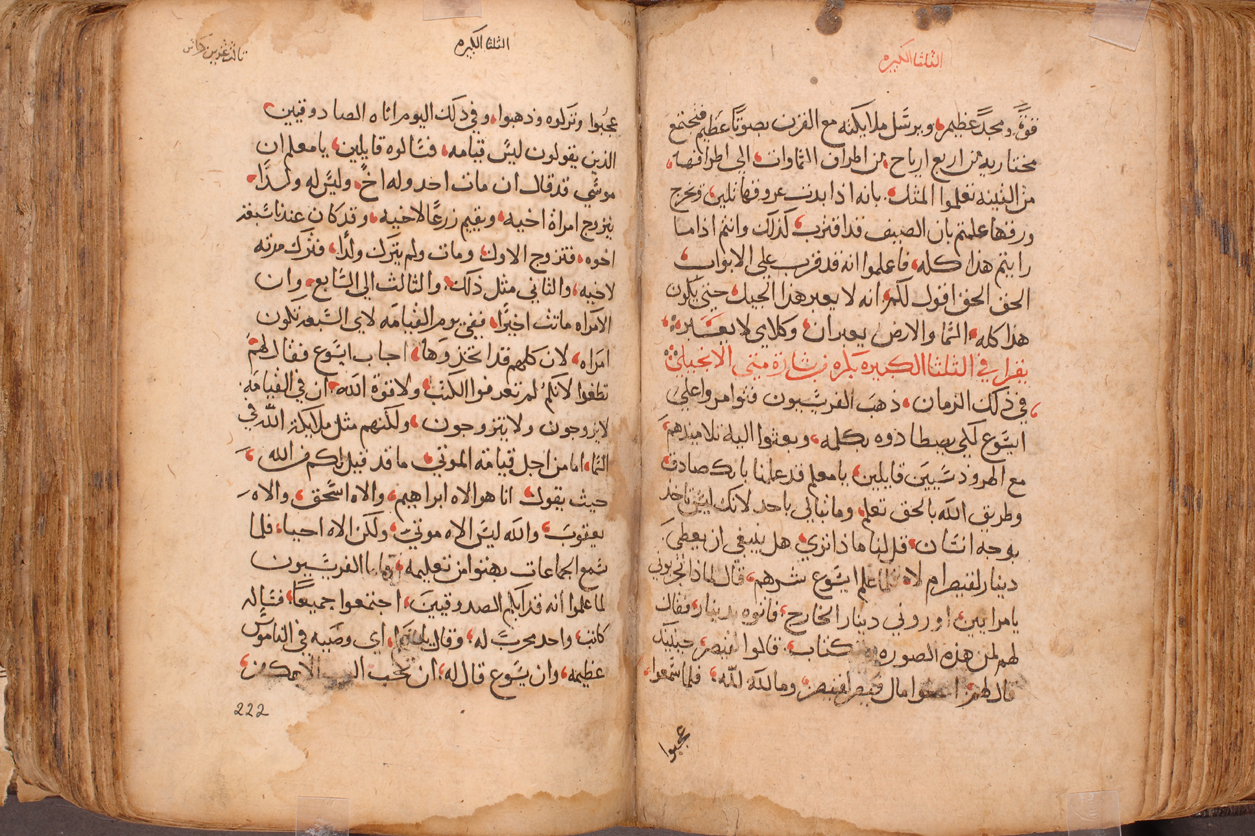 الثلثا الكبيره
قوة ومجد عظيم ويرسل ملايكته مع القرن بصوت عظيم فتجتمع
مختاريه من اربع ارياح من اطراف السماوات الى اطرافها
من التينه تعلموا المثل بانه اذا بدت عروقها تلين وتخرج
ورقها علمتم بان الصيف قد اقترب كذلك وانتم اذا ما
رايتم هذا كله فاعلموا انه قد قرب على الابواب
الحق الحق اقول لكم انه لا يعبر هذا الجيل حتى يكون
هذا كله السما والارض يعبران وكلامي لا يعبر
يقرا في الثلثا الكبيره بكره من بشارة متى الانجيلي
في ذلك الزمان ذهب الفريسيون فتوامروا على
ايسوع لكي يصطادوه بكلمه وبعثوا اليه تلاميذهم
مع الهرودسيين قايلين يا معلم قد علمنا بانك صادق
وطريق الله بالحق تعلم وما تبالي باحد لانك ليس تاخذ
بوجه انسان قل لنا ماذا ترى هل ينبغي ان يعطى
دينار لقيصر ام لا فلما علم ايسوع شرهم قال لماذا تجربوني
يا مرايين اوروني دينار الخراج فاتوه بدينار فقال
لهم لمن هذه الصوره كتاب قالوا لقيصر حينيذ
قال لهم اعطوا مال قيصر لقيصر وما لله لله فلما سمعوا
عجبوا
الثلثا الكبيره
عجبوا وتركوه وذهبوا وفي ذلك اليوم اتاه الصادوقيين
الذين يقولون ليس قيامه فسالوه قايلين يا معلم ان
موسي قد قال ان مات احد وله اخ وليس له ولدا
يتزوج امراة اخيه ويقيم زرعا لاخيه وقد كان عندنا سبعة
اخوه فتزوج الاول ومات ولم يترك ولدا فترك مرته
لاخيه والثاني مثل ذلك والثالث الى السابع وان
الامراه ماتت اخيرا ففي يوم القيامه لاي السبعه تكون
امراه لان كلهم قد اتخذوها اجاب ايسوع فقال لهم
تطغوا لانكم لم تعرفوا الكتب ولا قوة الله ان في القيامه
لا يزوجون ولا يتزوجون ولكنهم مثل ملايكة الله في
السما اما من اجل قيامة الموتى ما قد قيل لكم من الله
حيث يقول انا هو الاه ابراهيم والاه اسحق والاه
يعقوب والله ليس الاه موتى ولكن الاه احيا فلما
سمع الجماعات بهتوا من تعليمه فاما الفريسيون
لما علموا انه قد ابكم الصدوقيين اجتمعوا جميعا فساله
كاتب واحد مجرب له وقال يا معلم اي وصيه في الناموس
عظيمه وان يسوع قال له ان تحب الرب الاهك من
222